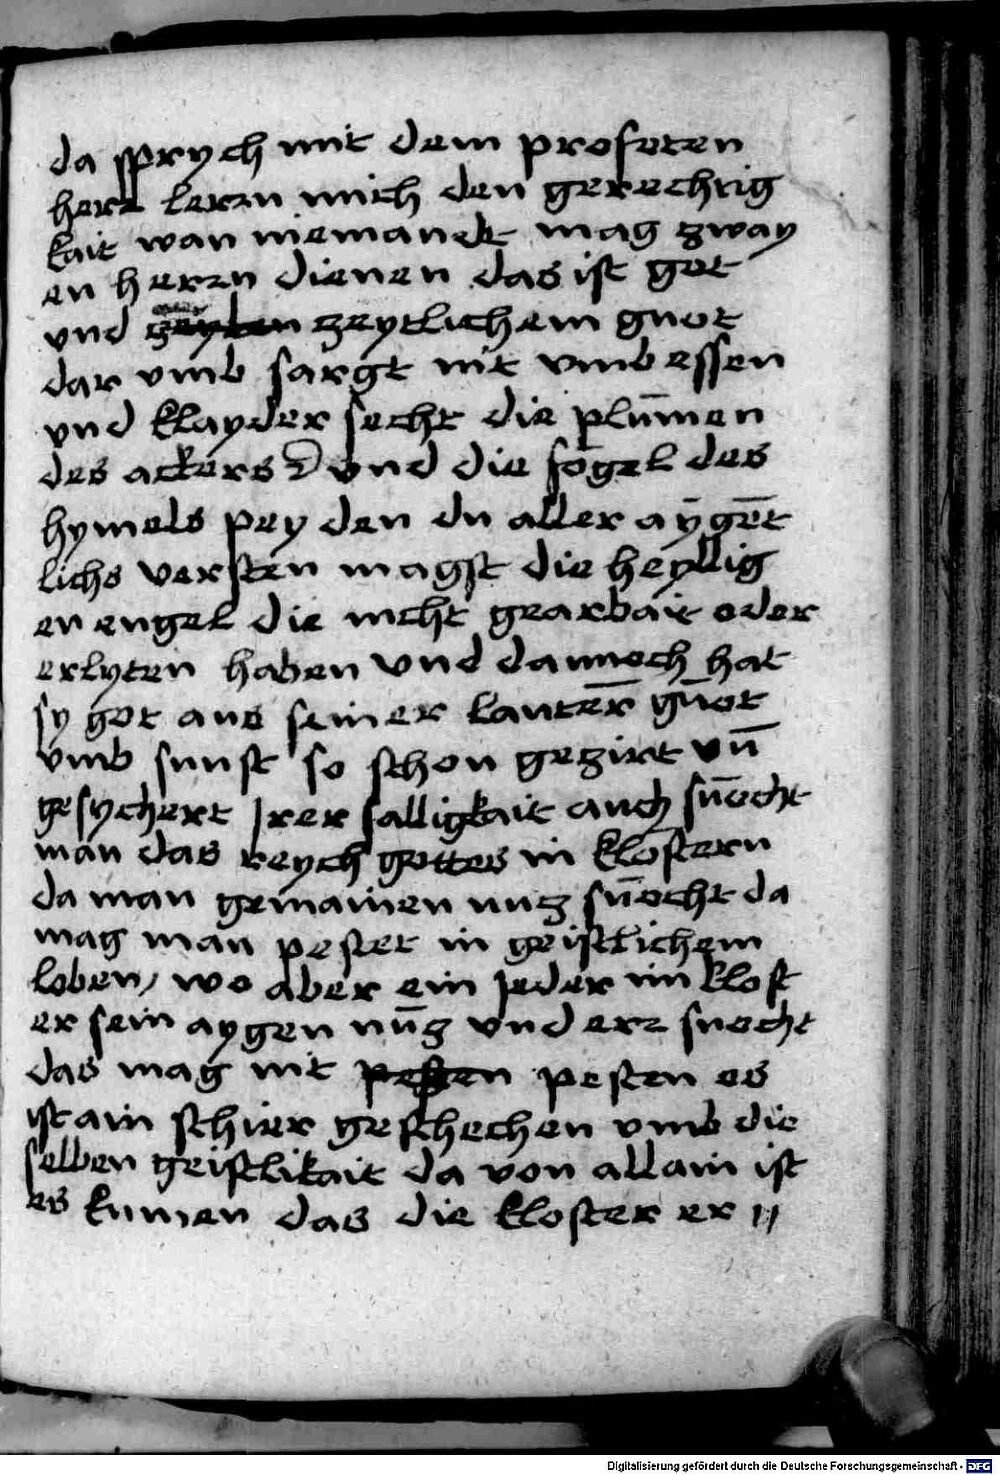 da sprych mit dem profeten
herr lerrn mich den gerechtig
kait wan niemandt mag zway
en herrn dienen das ist got
vnd zeytlichem guot
dar vmb sargt nit vmb essen
vnd klayder secht die plūmen
des ackers vnd die fogel des
hymels pey den du aller aȳgēt
lichs versten magst die heyllig
en engel die nicht gearbait oder
erlyten haben vnd dannoch hat
sy got aus seiner lauter̄ guot
vmb sunst so schon gezirt vn̄
gesychert Jrer salligkait auch sūocht
man das reych gottes in klostern
da man gemainen nuz sūocht da
mag man pestet in geistlichem
loben, wo aber ein Jeder im klost
er sein aygen nūz vnd err suocht
das mag nit pesten pesten es
ist ain schier geschechen vmb die
selben geistlikait da von allain ist
es kumen das die kloster er //
Digitalisierung gefördert durch die Deutsche Forschungsgemeinschaft - DFG